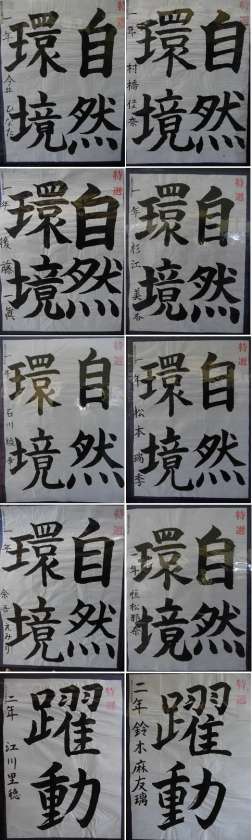 特選
自然
環境
一年 今井 ひなた
特選
自然
環境
一年 村橋
特選
自然
環境
一年 後藤 一真
特選
自然
環境
一年 杉江 美吞
特選
自然
環境
一年 石川
特選
自然
環境
一年 松本 璃季
特選
自然
環境
一年 余吾 えみり
特選
自然
環境
一年 恒松
特選
躍動
二年 江川里穂
特選
躍動
二年 鈴木麻友璃